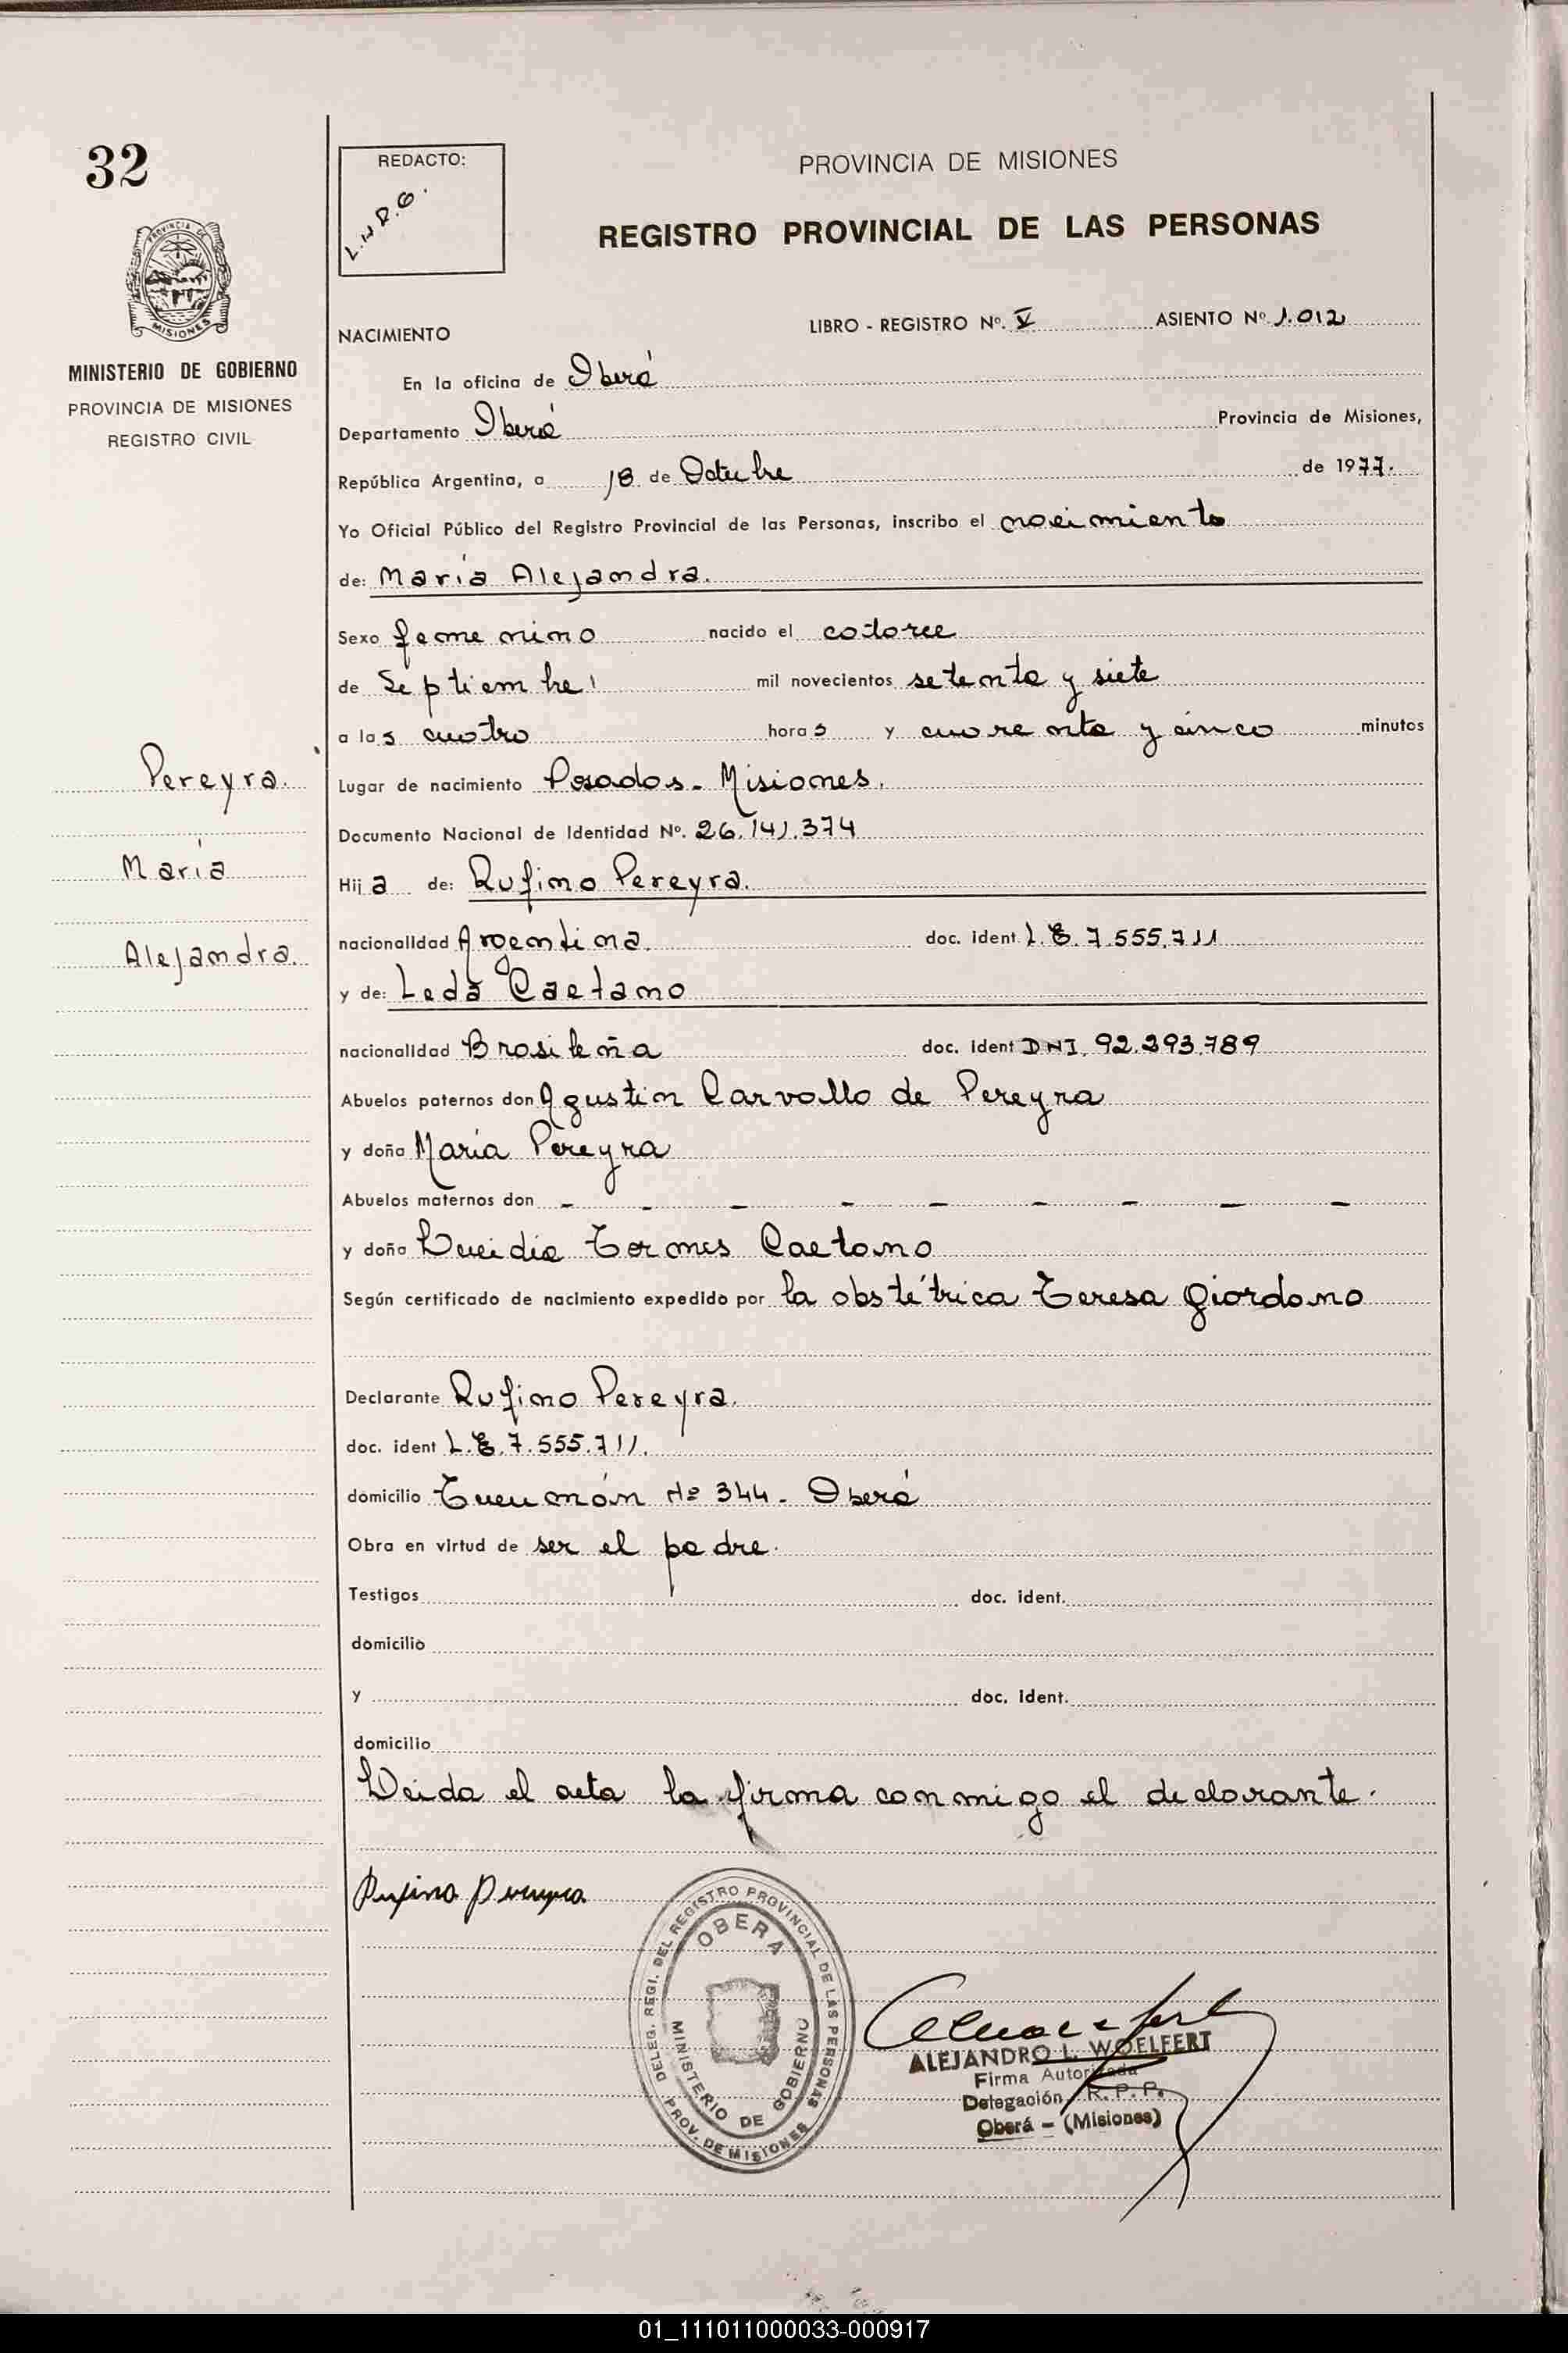 32
REDACTO:
L.H.R.G.
PROVINCIA DE MISIONES
REGISTRO PROVINCIAL DE LAS PERSONAS
PROVINCIA DE
MISIONES
MINISTERIO DE GOBIERNO
PROVINCIA DE MISIONES
REGISTRO CIVIL
LIBRO - REGISTRO Nº. V ASIENTO Nº 1.012
NACIMIENTO
En la oficina de Oberá
Departamento Oberá Provincia de Misiones,
República Argentina, a 18 de Octubre de 1977.
Yo Oficial Público del Registro Provincial de las Personas, inscribo el nacimiento
de: María Alejandra.
Sexo femenino nacido el catorce
de Septiembre mil novecientos setenta y siete
a las cuatro horas y cuarenta y cinco minutos
Pereyra.
María
Alejandra.
Lugar de nacimiento Posadas - Misiones.
Documento Nacional de Identidad Nº. 26.141.374
Hija de: Rufino Pereyra.
nacionalidad Argentina. doc. ident L.E. 7.555.711
y de: Leda Caetano
nacionalidad Brasileña doc. ident DNI. 92.293.789
Abuelos paternos don Agustin Carvallo de Pereyra
y doña María Pereyra
Abuelos maternos don - - - - - - - - -
y doña Lucidia Caetano
Según certificado de nacimiento expedido por la obstétrica Teresa Giordano
Declarante Rufino Pereyra.
doc. ident L.E. 7.555.711.
domicilio Tucumán Nº 344 - Oberá
Obra en virtud de ser el padre.
Testigos doc. ident.
domicilio
y doc. ident.
domicilio
Leida el acta la firma conmigo el declarante.
Rufino Pereyra
DELEG. REGI. DEL REGISTRO PROVINCIAL DE LAS PERSONAS
OBERA
MINISTERIO DE GOBIERNO
PROV. DE MISIONES
ALEJANDRO L. WOELFERT
Firma Autorizada
Delegación R. P. P.
Oberá - (Misiones)
01_111011000033-000917